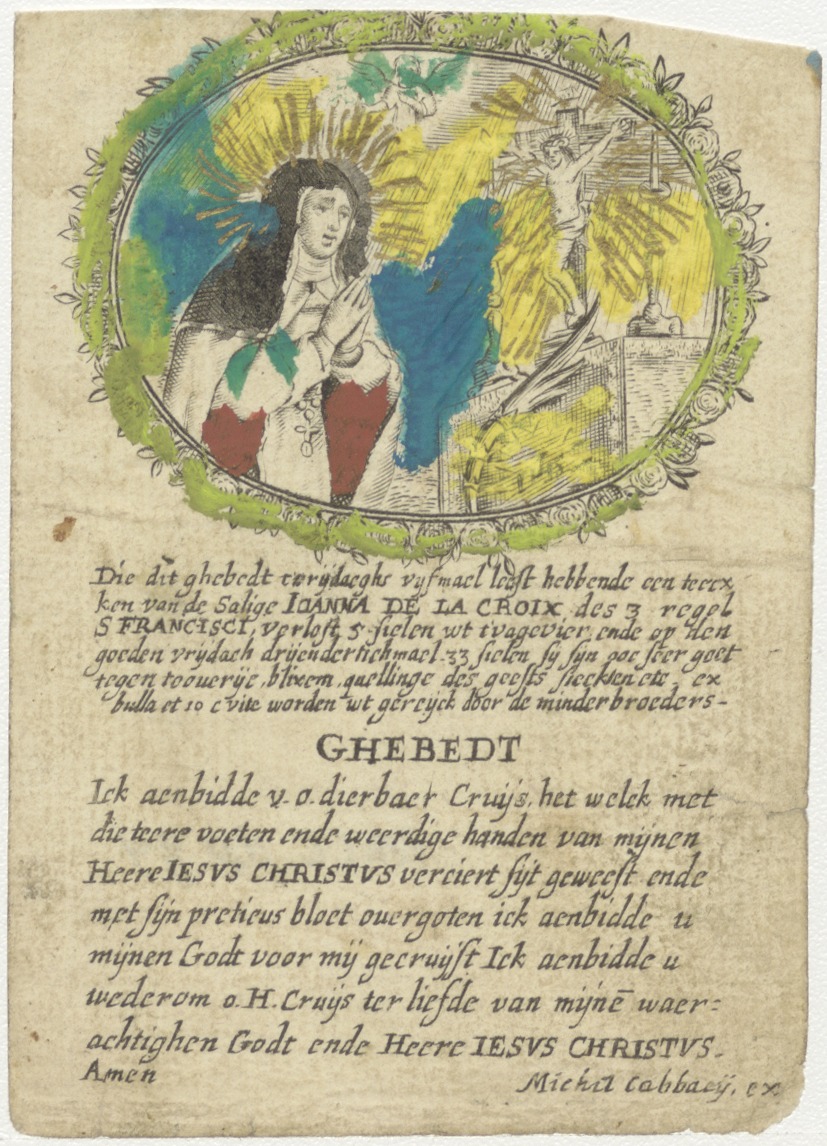 Die dit ghebedt tvrijdaeghs vijfmael leest hebbende een teecx
ken van de Salige IOANNA DE LA CROIX des 3 regel
S FRANCISCI, verlost 5 sielen wt tvagevier, ende op den
goeden vrijdach drijendertichmael 33 sielen sy syn ooc seer goet
tegen tooverije, blixem, quellinge des geests sieckten etc ex
bulla et 10 c vite worden wt gereyck door de minderbroeders-
GHEBEDT
Ick aenbidde v. o. dierbaer Cruijs, het welck met
die teere voeten ende weerdige handen van mijnen
Heere IESVS CHRISTVS verciert sijt geweest ende
met sijn pretieus bloet overgoten ick aenbidde u
mijnen Godt voor mij gecruijst Ick aenbidde u
wederom o. H. Cruijs ter liefde van mijnē waer:
achtighen Godt ende Heere IESVS CHRISTVS.
Amen
Michil Cabbaeij, ex